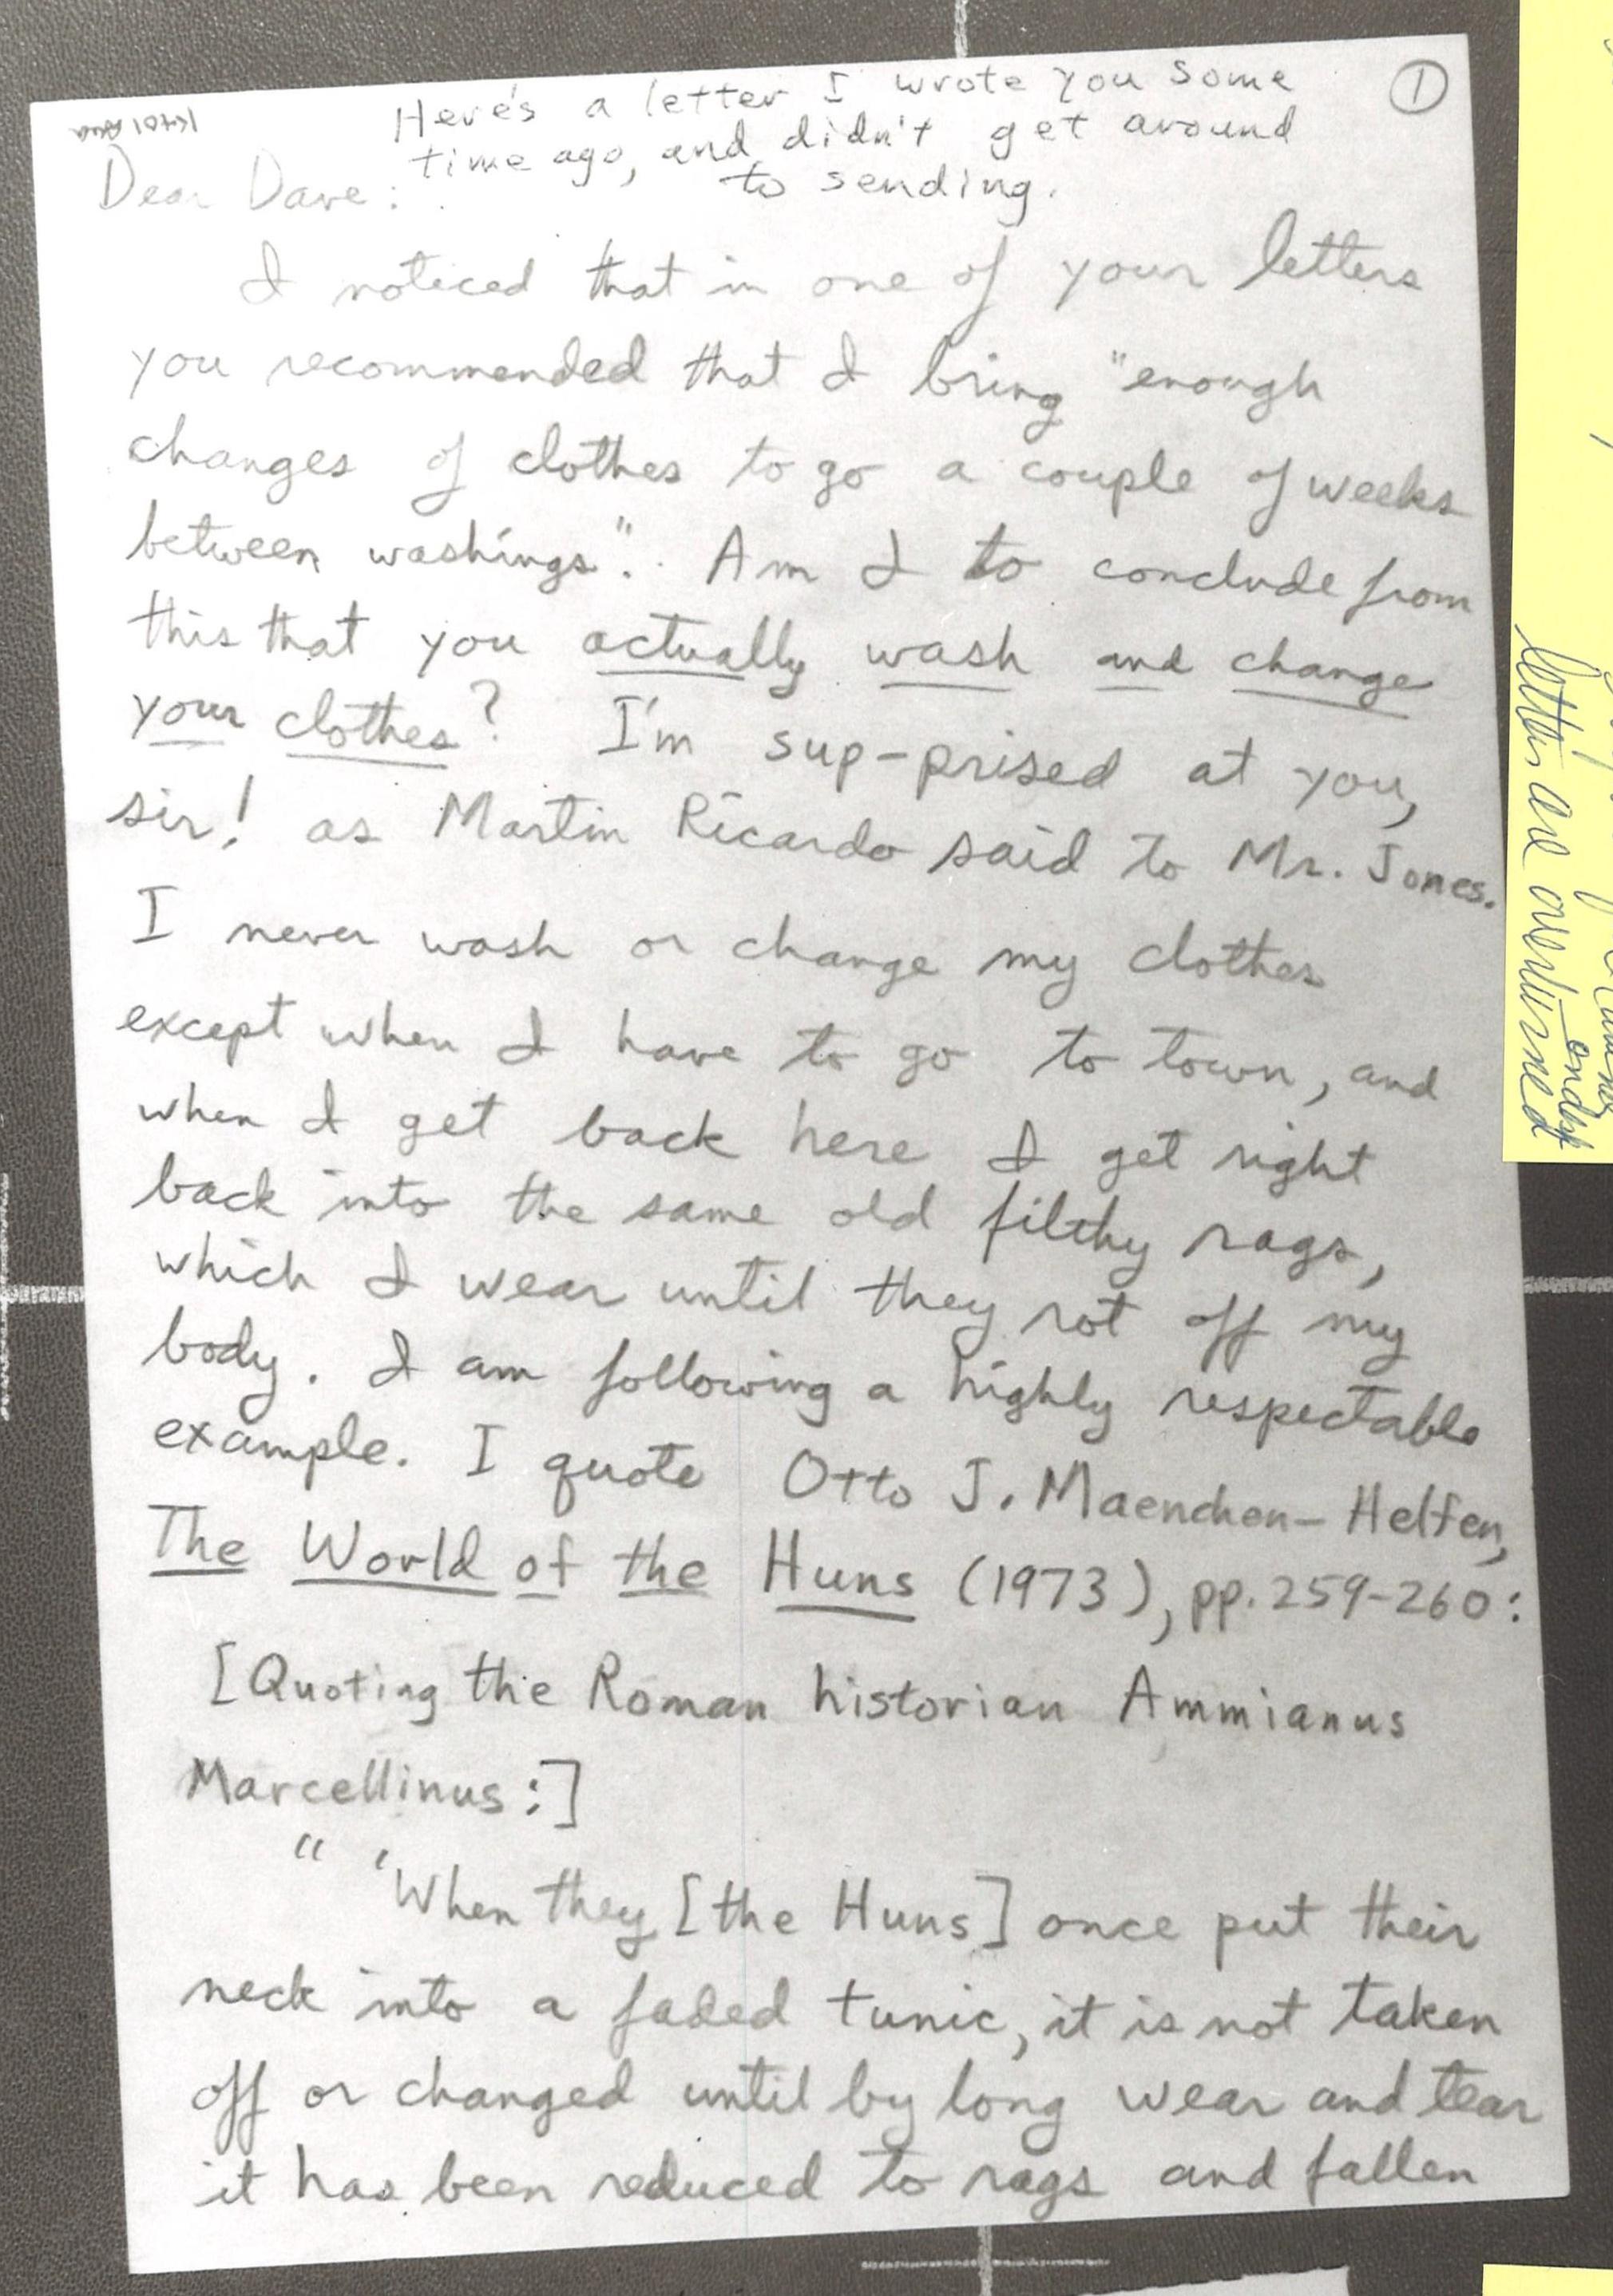 ①
Here's a letter I wrote you some
time ago, and didn't get around
to sending.
Dear Dave:
I noticed that in one of your letters
you recommended that I bring "enough
changes of clothes to go a couple of weeks
between washings". Am I to conclude from
this that you actually wash and change
your clothes? I'm sup-prised at you,
sir! as Martin Ricardo said to Mr. Jones.
I never wash or change my clothes
except when I have to go to town, and
when I get back here I get right
back into the same old filthy rags,
which I wear until they rot off my
body. I am following a highly respectable
example. I quote Otto J. Maenchen-Helfen,
The World of the Huns (1973), pp. 259-260:
[Quoting the Roman historian Ammianus
Marcellinus:]
" 'When they [the Huns] once put their
neck into a faded tunic, it is not taken
off or changed until by long wear and tear
it has been reduced to rags and fallen
letters are overlined